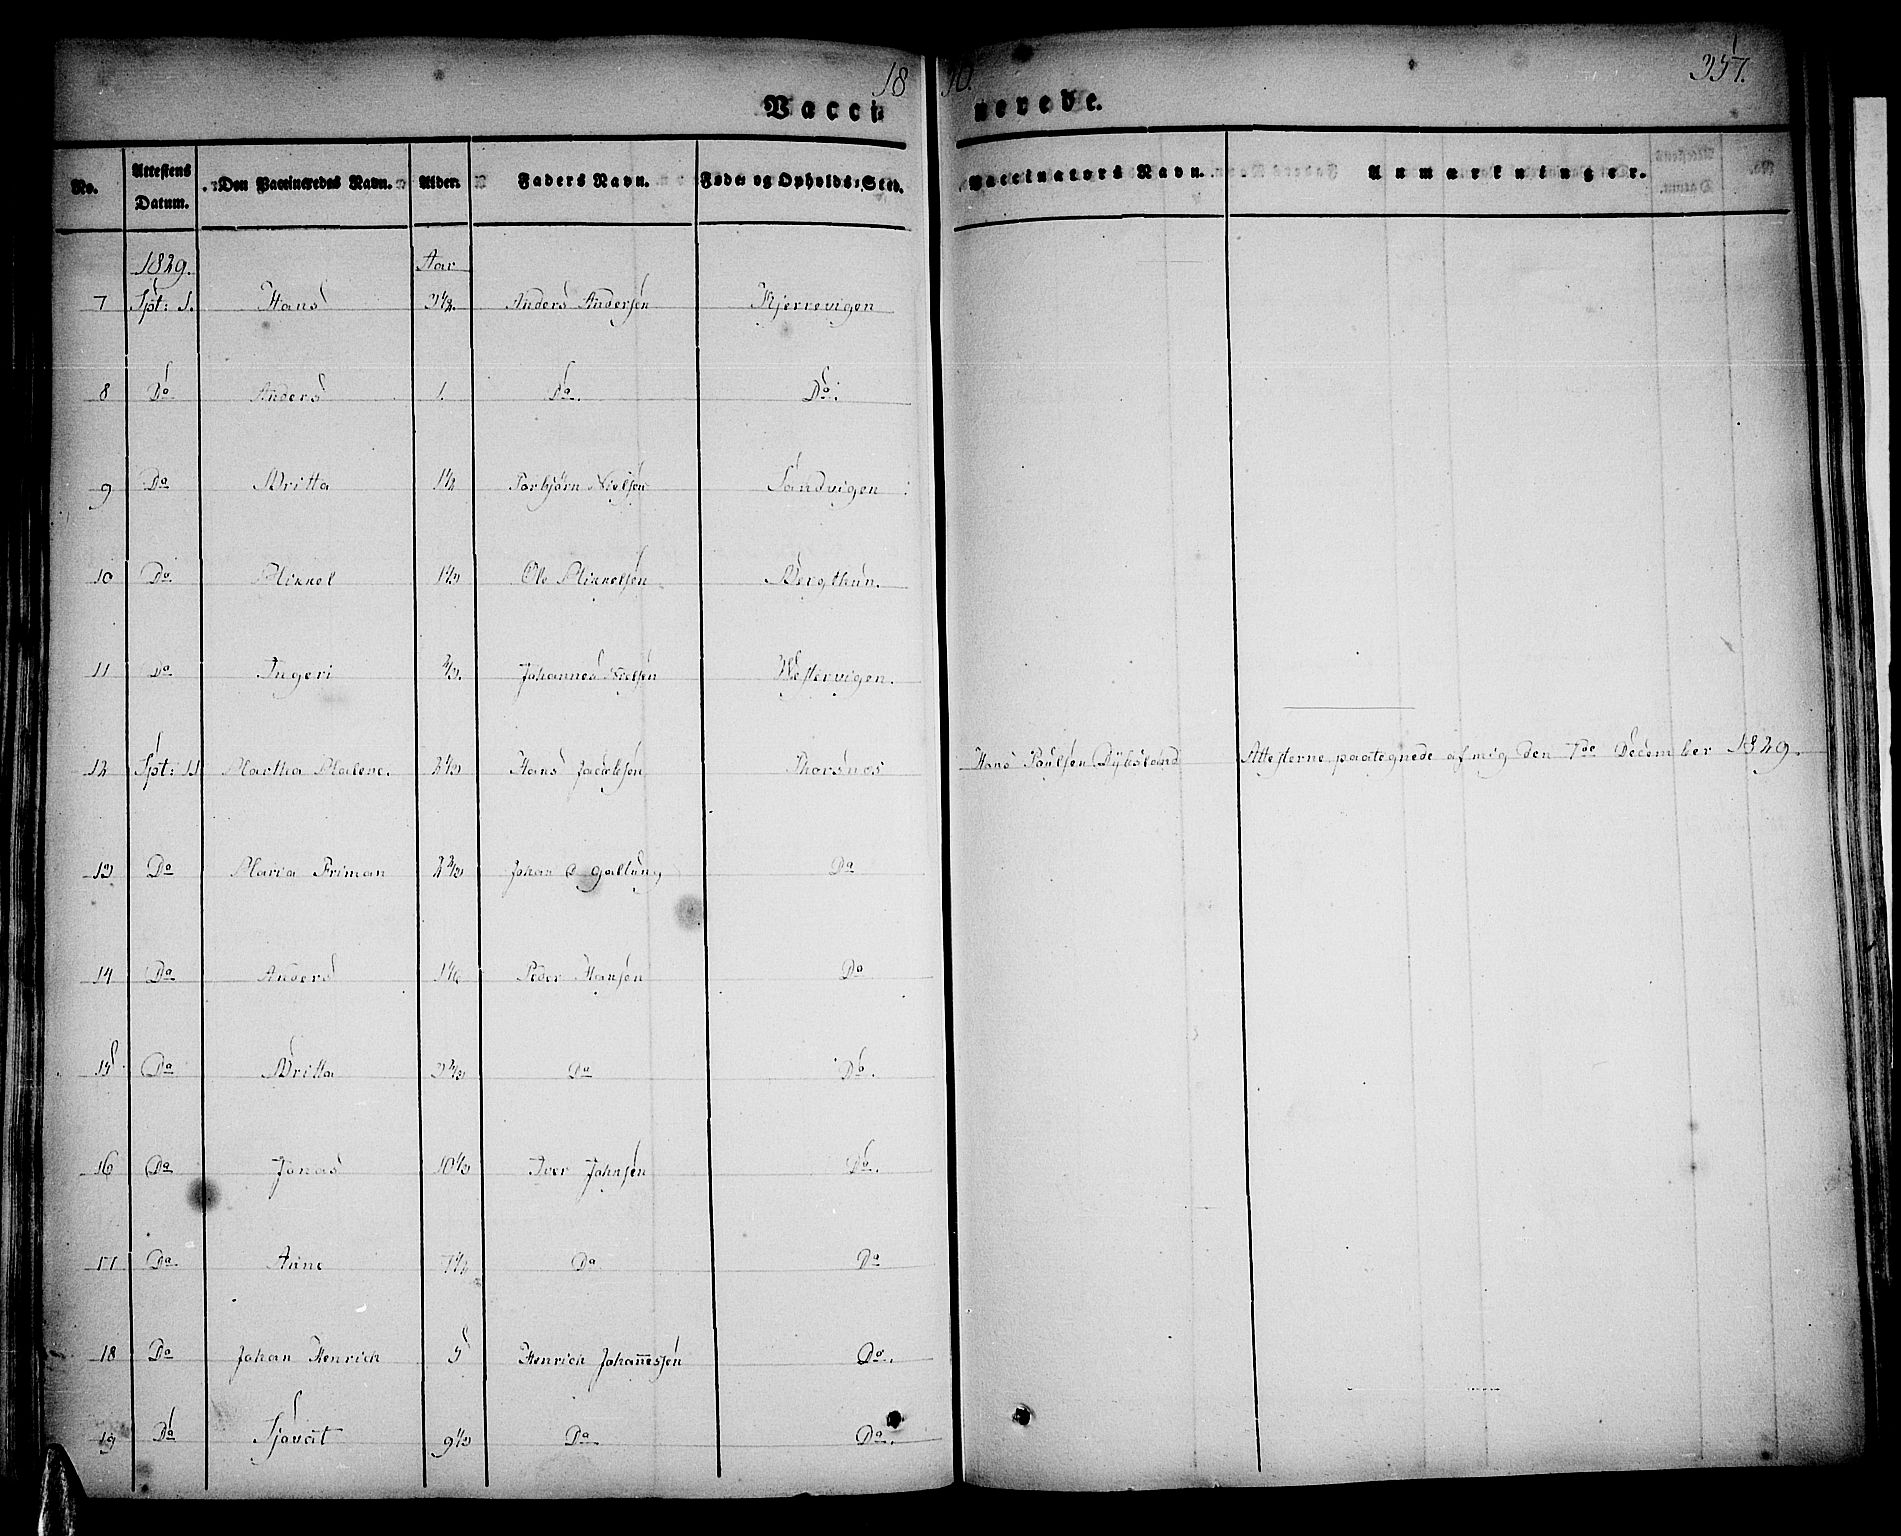 18 30. 357.
Vacci nerede.
No. Attestens Datum. Den Vaccineredes Navn. Alder. Faders Navn. Føde- og Opholds-Sted. Vaccinators Navn. Anmærkninger.
1829. Aar
7 Spt: 5. Hans 3 1/2. Anders Andersen Kjerrevigen
8 Do Anders 1. Do. Do.
9 Do Britta 1 1/2 Torbjørn Nielsen Sandvigen
10 Do Mikkel 1 1/3 Ole Mikkelsen Bergthun.
11 Do Ingeri 2/3. Johannes Nielsen Westervigen.
12 Spt: 11 Martha Malene. 2 1/3 Hans Jacobsen Thorsnes Hans Poulsen Dyksland Attesterne paategnede af mig den 7de December 1829.
13 Do Maria Friman 2 2/3 Johan Galtung Do
14 Do Anders 1 1/6 Peder Hansen Do
15 Do Britta 3 2/3 Do Do.
16 Do Jonas 10 1/3 Iver Johnsen Do.
17 Do Anne 7 1/2 Do Do
18 Do Johan Henrich 5 Henrich Johannesen Do.
19 Do Sjovat 9 1/3 Do Do.